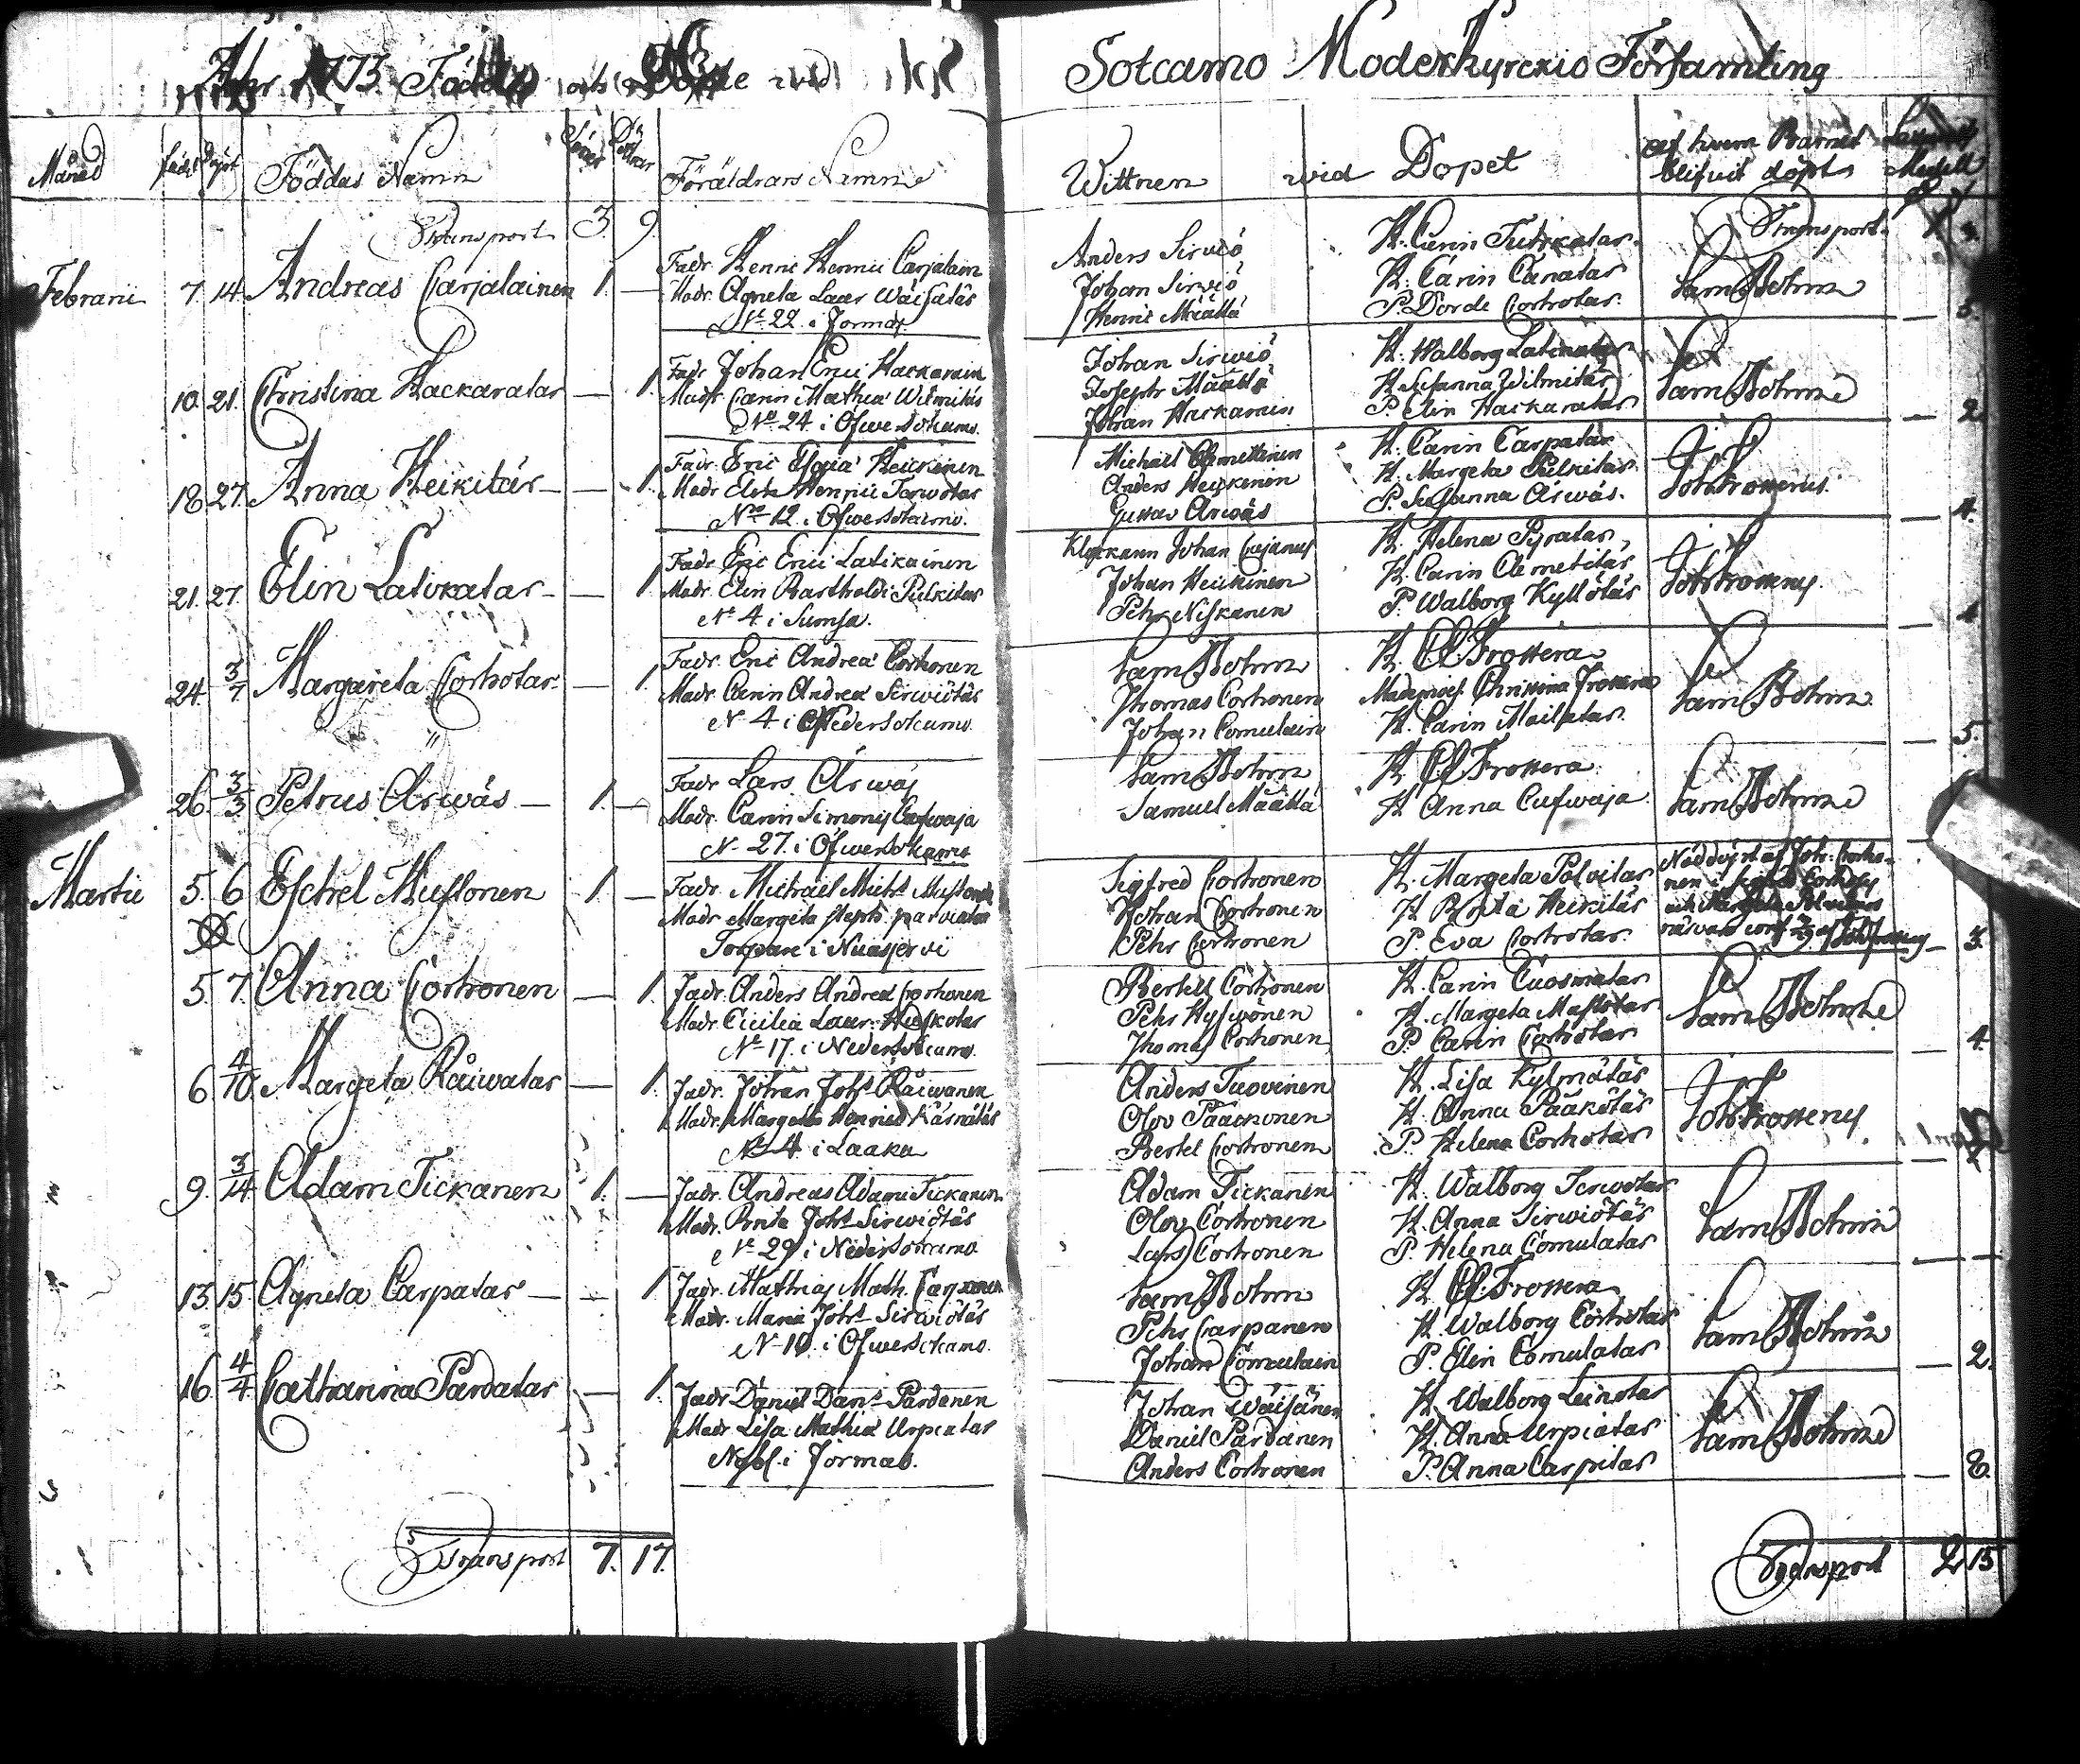 Åhr 1773. Födde och Döpte wid
Sotcamo Moderkyrckio Församling
Månad
Född
Döpt
Föddas Namn
Söner
Döttrar
Föräldrars Namn
Wittnen wid Dopet
af hwem Barnet
blifwit döpt
Transport 3. 9.
Transport.
Februarii 7. 14. Andreas Carjalainen 1. —
Fadr. Henric Henrici Carjalain
Modr. Agneta Laur Wäisatär
No 22. i Jormas
Anders Sirwiö
Johan Sirwiö
Henric Määttä
H. Carin Canatar
P. Carin Cortotar
Sam Bohm
10. 21. Christina Hackaratar — 1.
Fadr Johan Erici Hackarain
Modr Carin Mathiæ Wilmitär
No 24. i Öfwersotcamo.
Johan Sirwiö
Joseph Määttä
Johan Hackarain
H. Walborg Latikatar
H. Susanna Wilmitär
P. Elin Hackaratar
Sam Bohm
2
18 27. Anna Heikitär — — 1.
Fadr. Eric Heickinen
Modr Henrici Terwotar
No 12. i Öfwersotcamo.
Michael Clemettinen
Anders Heickinen
Gustav Arwäs
H. Carin Carpatar
H. Margeta Pulkitar
P. Susanna Arwäs.
Joh Frosterus
4.
21. 27. Elin Latikatar — — 1.
Fadr Eric Erici Latikainen
Modr. Elin Bartholdi Pulkitar
No 4 i Sumsa.
Klockaren Johan Cajanus
Johan Heickinen
Pehr Niskanen
H. Helena Pyratar
H. Carin Clemetitär
P. Walborg Kyllötär
Joh Frosterus.
24. 3/7 Margareta Corhotar — 1.
Fadr. Eric Andreæ Corhonen
Modr. Carin Andreæ Sirwiötär
No 4. i Nedersotcamo.
Sam Bohm
Thomas Corhonen
Johan Comulain
H. Frostera
Christina Frostera
H. Carin Moilatar.
Sam Bohm
5.
26. 3/3 Petrus Arwäs — 1. —
Fadr Lars Arwäs
Modr. Carin Simonis Cufwaja
No 27. i Öfwersotcamo
Sam Bohm
Samuel Määttä
H. Frostera
H. Anna Cufwaja
Sam Bohm
Martii 5. 6 Eschel Mustonen 1. —
Fadr. Michael Michs Mustonen
Modr Margeta Steph. Polviatar
Torpare i Nuasjervi
Sigfred Corhonen
Johan Corhonen
Pehr Corhonen
H. Margeta Polvitar
H Brita Heikitär
P. Eva Corhotar.
Nöddöpt af Joh: Corho-
nen i
3.
5. 7. Anna Corhonen — 1.
Fadr. Anders Andreæ Corhonen
Modr. Cicilia Laur.
No 17. i Nedersotcamo.
Bertell Corhonen
Pehr Hyfwönen
Thomas Corhonen
H. Carin Cuosmatar
H. Margeta Mustotar
P. Carin Corhotar
Sam Bohm
4.
6 4/10 Margeta Räiwatar — 1.
Fadr. Johan Johs Räiwanen
Modr. Margeta Henrici Kärnätär
No 4 i Laaka
Anders Tuovinen
Olov Pääckönen
Bertel Corhonen
H. Lisa Kylmätär
H. Anna Pääkötär
P. Helena Corhotar
Joh Frosterus
9. 3/14 Adam Tickanen 1. —
Fadr. Andreas Adami Tickanen
Modr. Brita Johs Sirwiötär
No 29 i Nedersotcamo
Adam Tickanen
Olov Corhonen
Lars Corhonen
H. Walborg Terwotar
H. Anna Sirwiötär
P. Helena Comulatar
Sam Bohm
13. 15. Agneta Carpatar — — 1
Fadr. Mathias Math. Carpanen
Modr. Maria Johs Sirwiötär
No 10. i Öfwersotcamo.
Sam Bohm
Pehr Carpanen
Johan Comulain
H Frostera
H. Walborg Corhotar
P. Elin Comulatar
Sam Bohm
2.
16. 4/4 Catharina Pardatar — 1.
Fadr Daniel Dans Pardanen
Modr Lisa Mathiæ Urpiatar
Nybl. i Jormas.
Johan Wäisänen
Daniel Pardanen
Anders Corhonen
H Walborg Leinotar
H. Anna Urpiatar
P. Anna Carpitar
Sam Bohm
8.
Transport 7. 17.
Transport 2 15